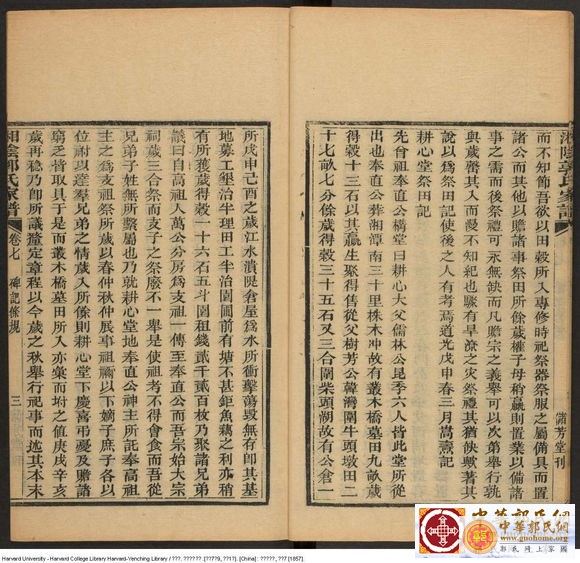 湘陰郭氏家譜
諸芳堂刊
而不知節吾欲以田穀所入專修時祀祭器祭服之屬備具而置
諸公而其他以贍諸事祭田所餘歲權子母稍贏則置業以備諸
事之需而後祭禮可永無缺而凡贍宗之義舉可以次弟舉行孰
與歲醫其入而漫不知紀也驟有旱潦之灾祭禮其猶怏歟著其
說以為祭田記使後之人有考焉道光戊申春三月嵩燾記
耕心堂祭田記
先曾祖奉直公構堂曰耕心大父儒林公昆季六人皆此堂所從
出也奉直公葬湘潭南三十里株木冲故有叢木橋墓田九畝歲
得穀十三石以其贏生聚得售從父樹芳公韓灣圍牛頭墩田二
十七畝七分餘歲得穀三十五石又三合圍柴頭湖故有公倉一
所戊申己酉之歲江水潰隄倉屋為水所衝擊蕩毀無存卽其基
地募工墾治牛理田工半治園圃前有塘不甚鉅魚藕之利亦稍
有所獲歲得穀一十六石五斗園租錢貳千貳百枚乃聚諸兄弟
議曰自高祖人萬公分房為支祖一傳至奉直公而吾宗始大宗
祠歲三合祭而支子之祭廢不一舉是使祖考不得會食而吾從
兄弟子姓無所繫屬也乃就耕心堂地奉直公神主所託奉高祖
主之為支祖祭所歲以春仲秋仲展事祖禰以下嫡子庶子各以
位祔以達羣兄弟之情歲入所餘則耕心堂下慶喜弔憂及贍諸
窮乏皆取具于是而叢木橋墓田所入亦彙而坿之值庚戌辛亥
歲再稔乃卽所議釐定章程以今歲之秋舉行祀事而述其本末
湘陰郭氏家譜 卷七 碑記條規 三
中華郭氏網
www.guohome.org
郭氏陇上家園
Harvard University - Harvard College Library Harvard-Yenching Library / ???, ??????. [????9, ??1?]. [China] : ?????:, ??? [1857].